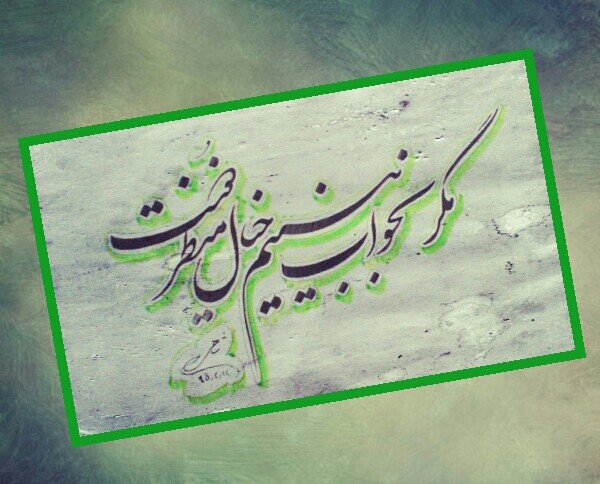 مگر بخواب ببینم خیال منظر دوست